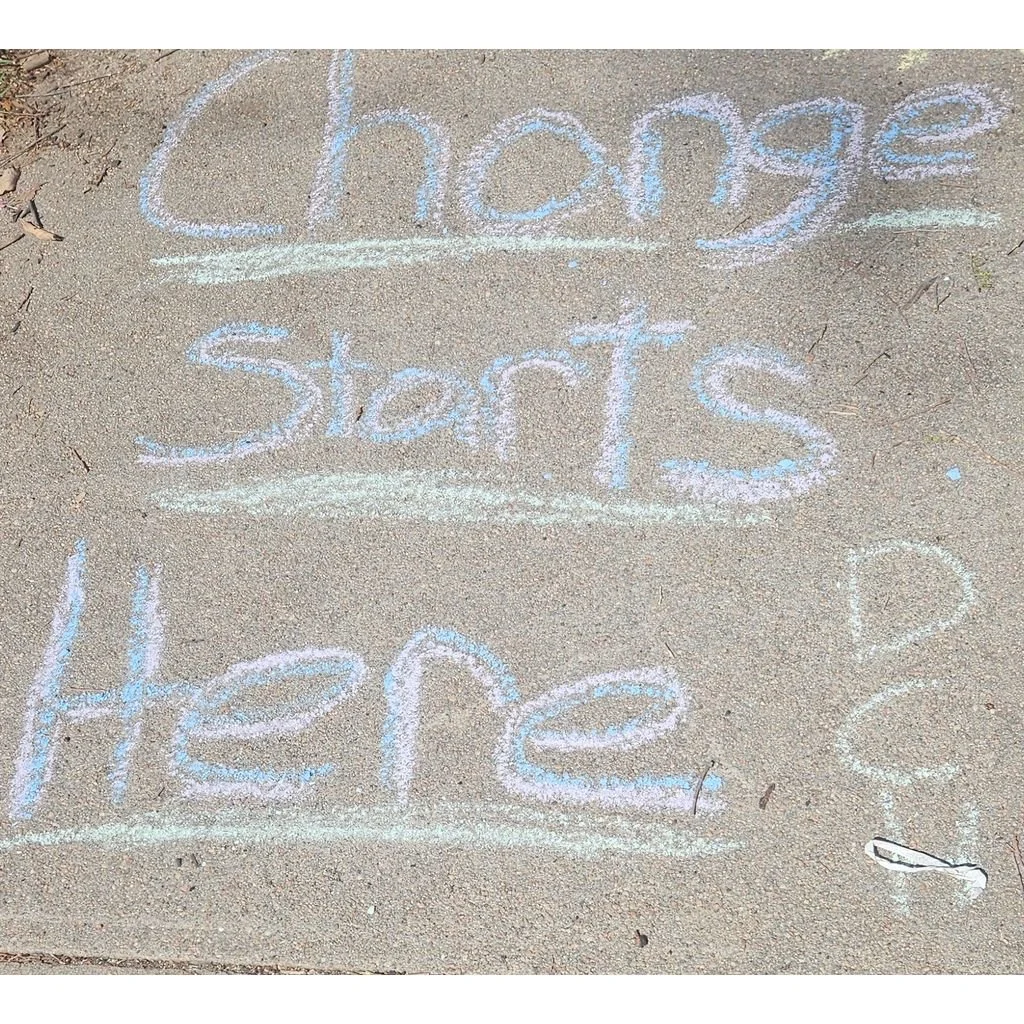 Change
Starts
Here
DCH